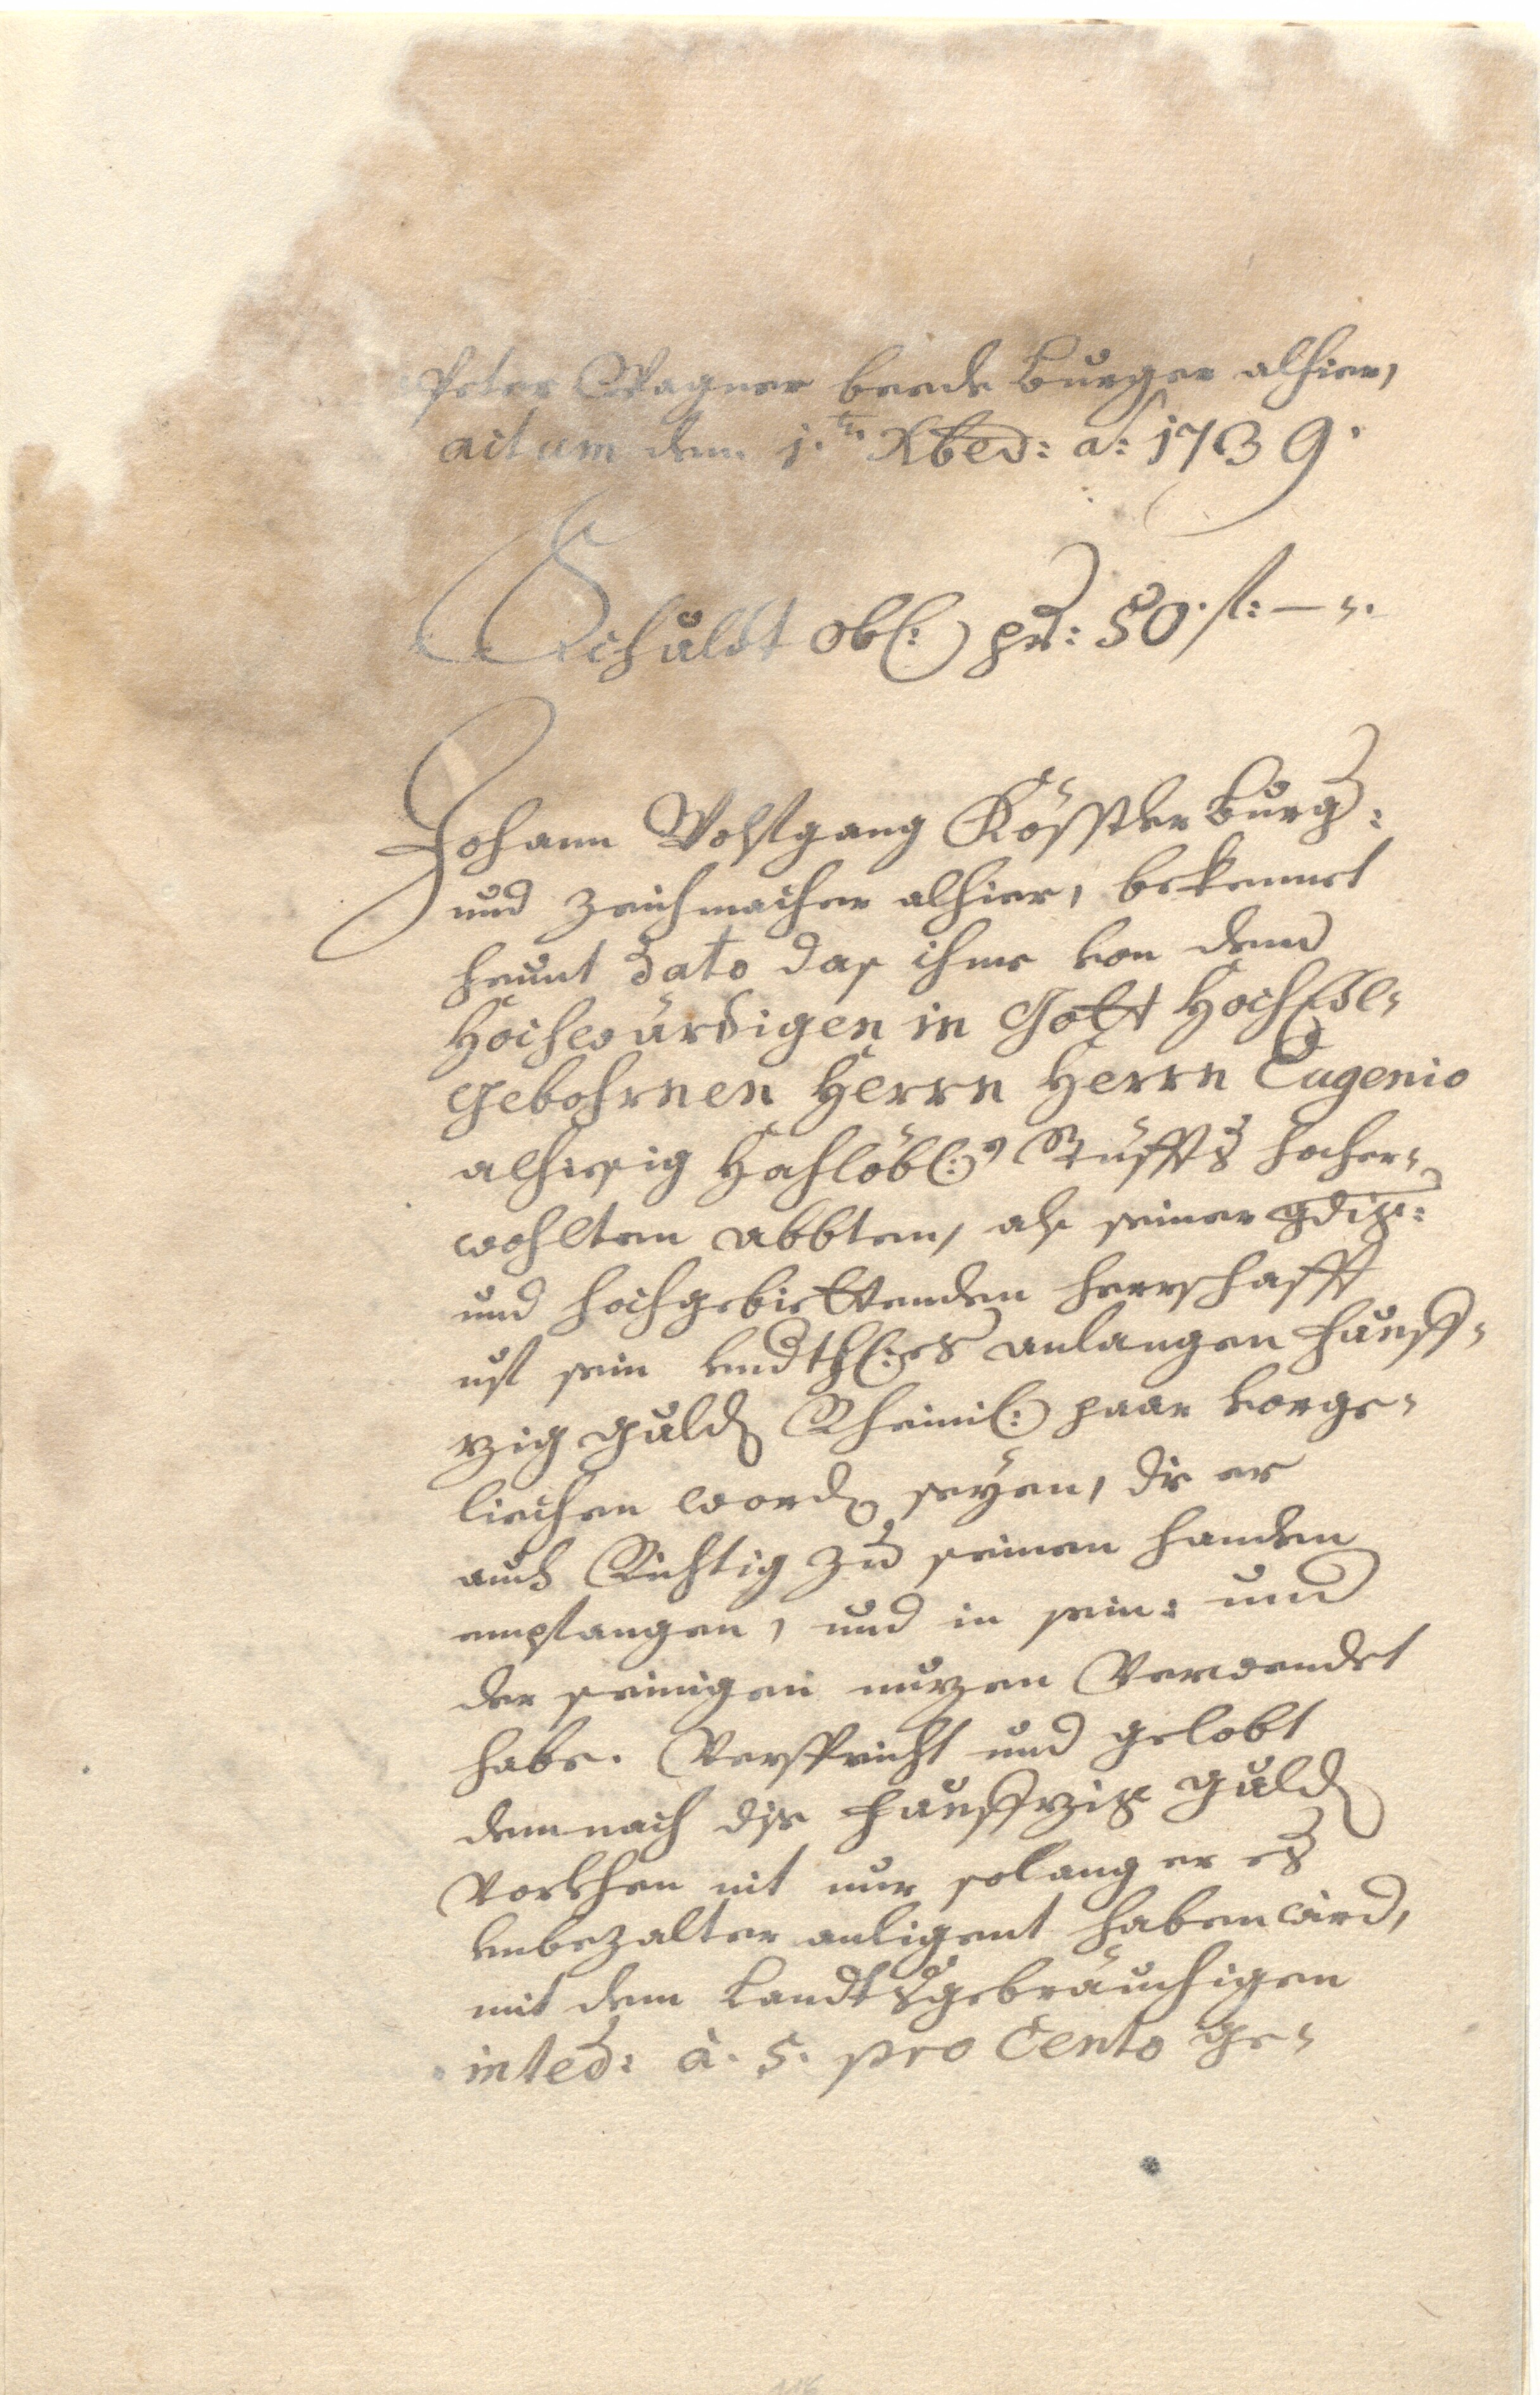 Peter Wagner beede Burger alhier,
actum den 1.ten Xbed: a: 1739.
Schuldt Obl: pr: 50. fl: —
Johann Wolfgang Kösstler Burg:
und Zeichmacher alhier, bekennet
heunt Dato das ihme von dem
Hochwürdigen in Gott HochEdl-
gebohrnen Herrn Herrn Eugenio
alhiesig Hochlöbl: Stüffts hocher-
wohlten Abbten, als seiner gdig:
und hochgebiettenden herrschafft
uf sein undth:es anlangen funff-
zig guld Rheinl: paar vorge-
liechen word seyen, die er
auch Richtig zu seinen handen
empfangen, und in sein: und
der seinigen nuzen Verwendet
habe. Verspricht und gelobt
demnach dise funffzig guld
Vorlehen nit nur solang er es
unbezalter anligent haben wird,
mit dem Landtsgebräuchigen
inted: à. 5. pro Cento ge-